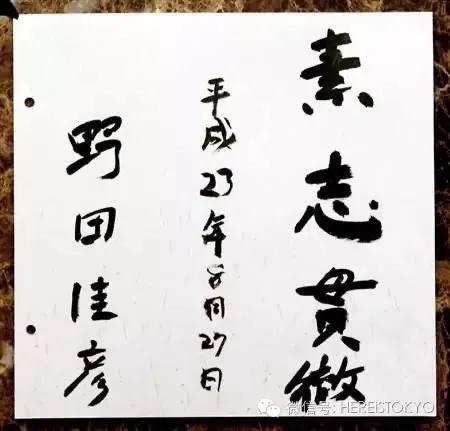 素志貫徹
平成23年8月27日
野田佳彦
微信号: HEREISTOKYO